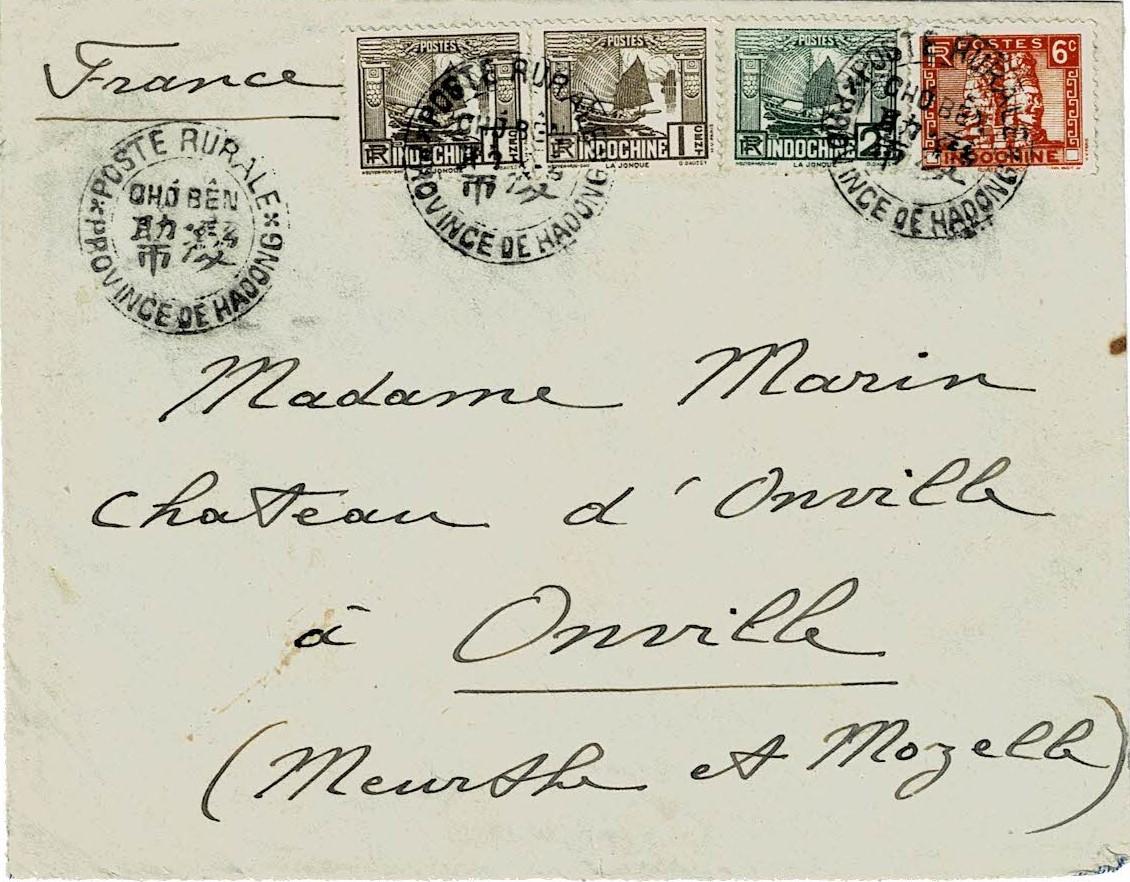 France
POSTES
1
INDOCHINE
LA JONQUE
POSTES
1
INDOCHINE
LA JONQUE
POSTES
2
INDOCHINE
LA JONQUE
POSTES 6c
INDOCHINE
POSTE RURALE
CHỢ BẾN
PROVINCE DE HADONG
POSTE RURALE
CHỢ BẾN
PROVINCE DE HADONG
POSTE RURALE
CHỢ BẾN
PROVINCE DE HADONG
Madame Marin
Chateau d'Onville
à Onville
(Meurthe et Mozelle)